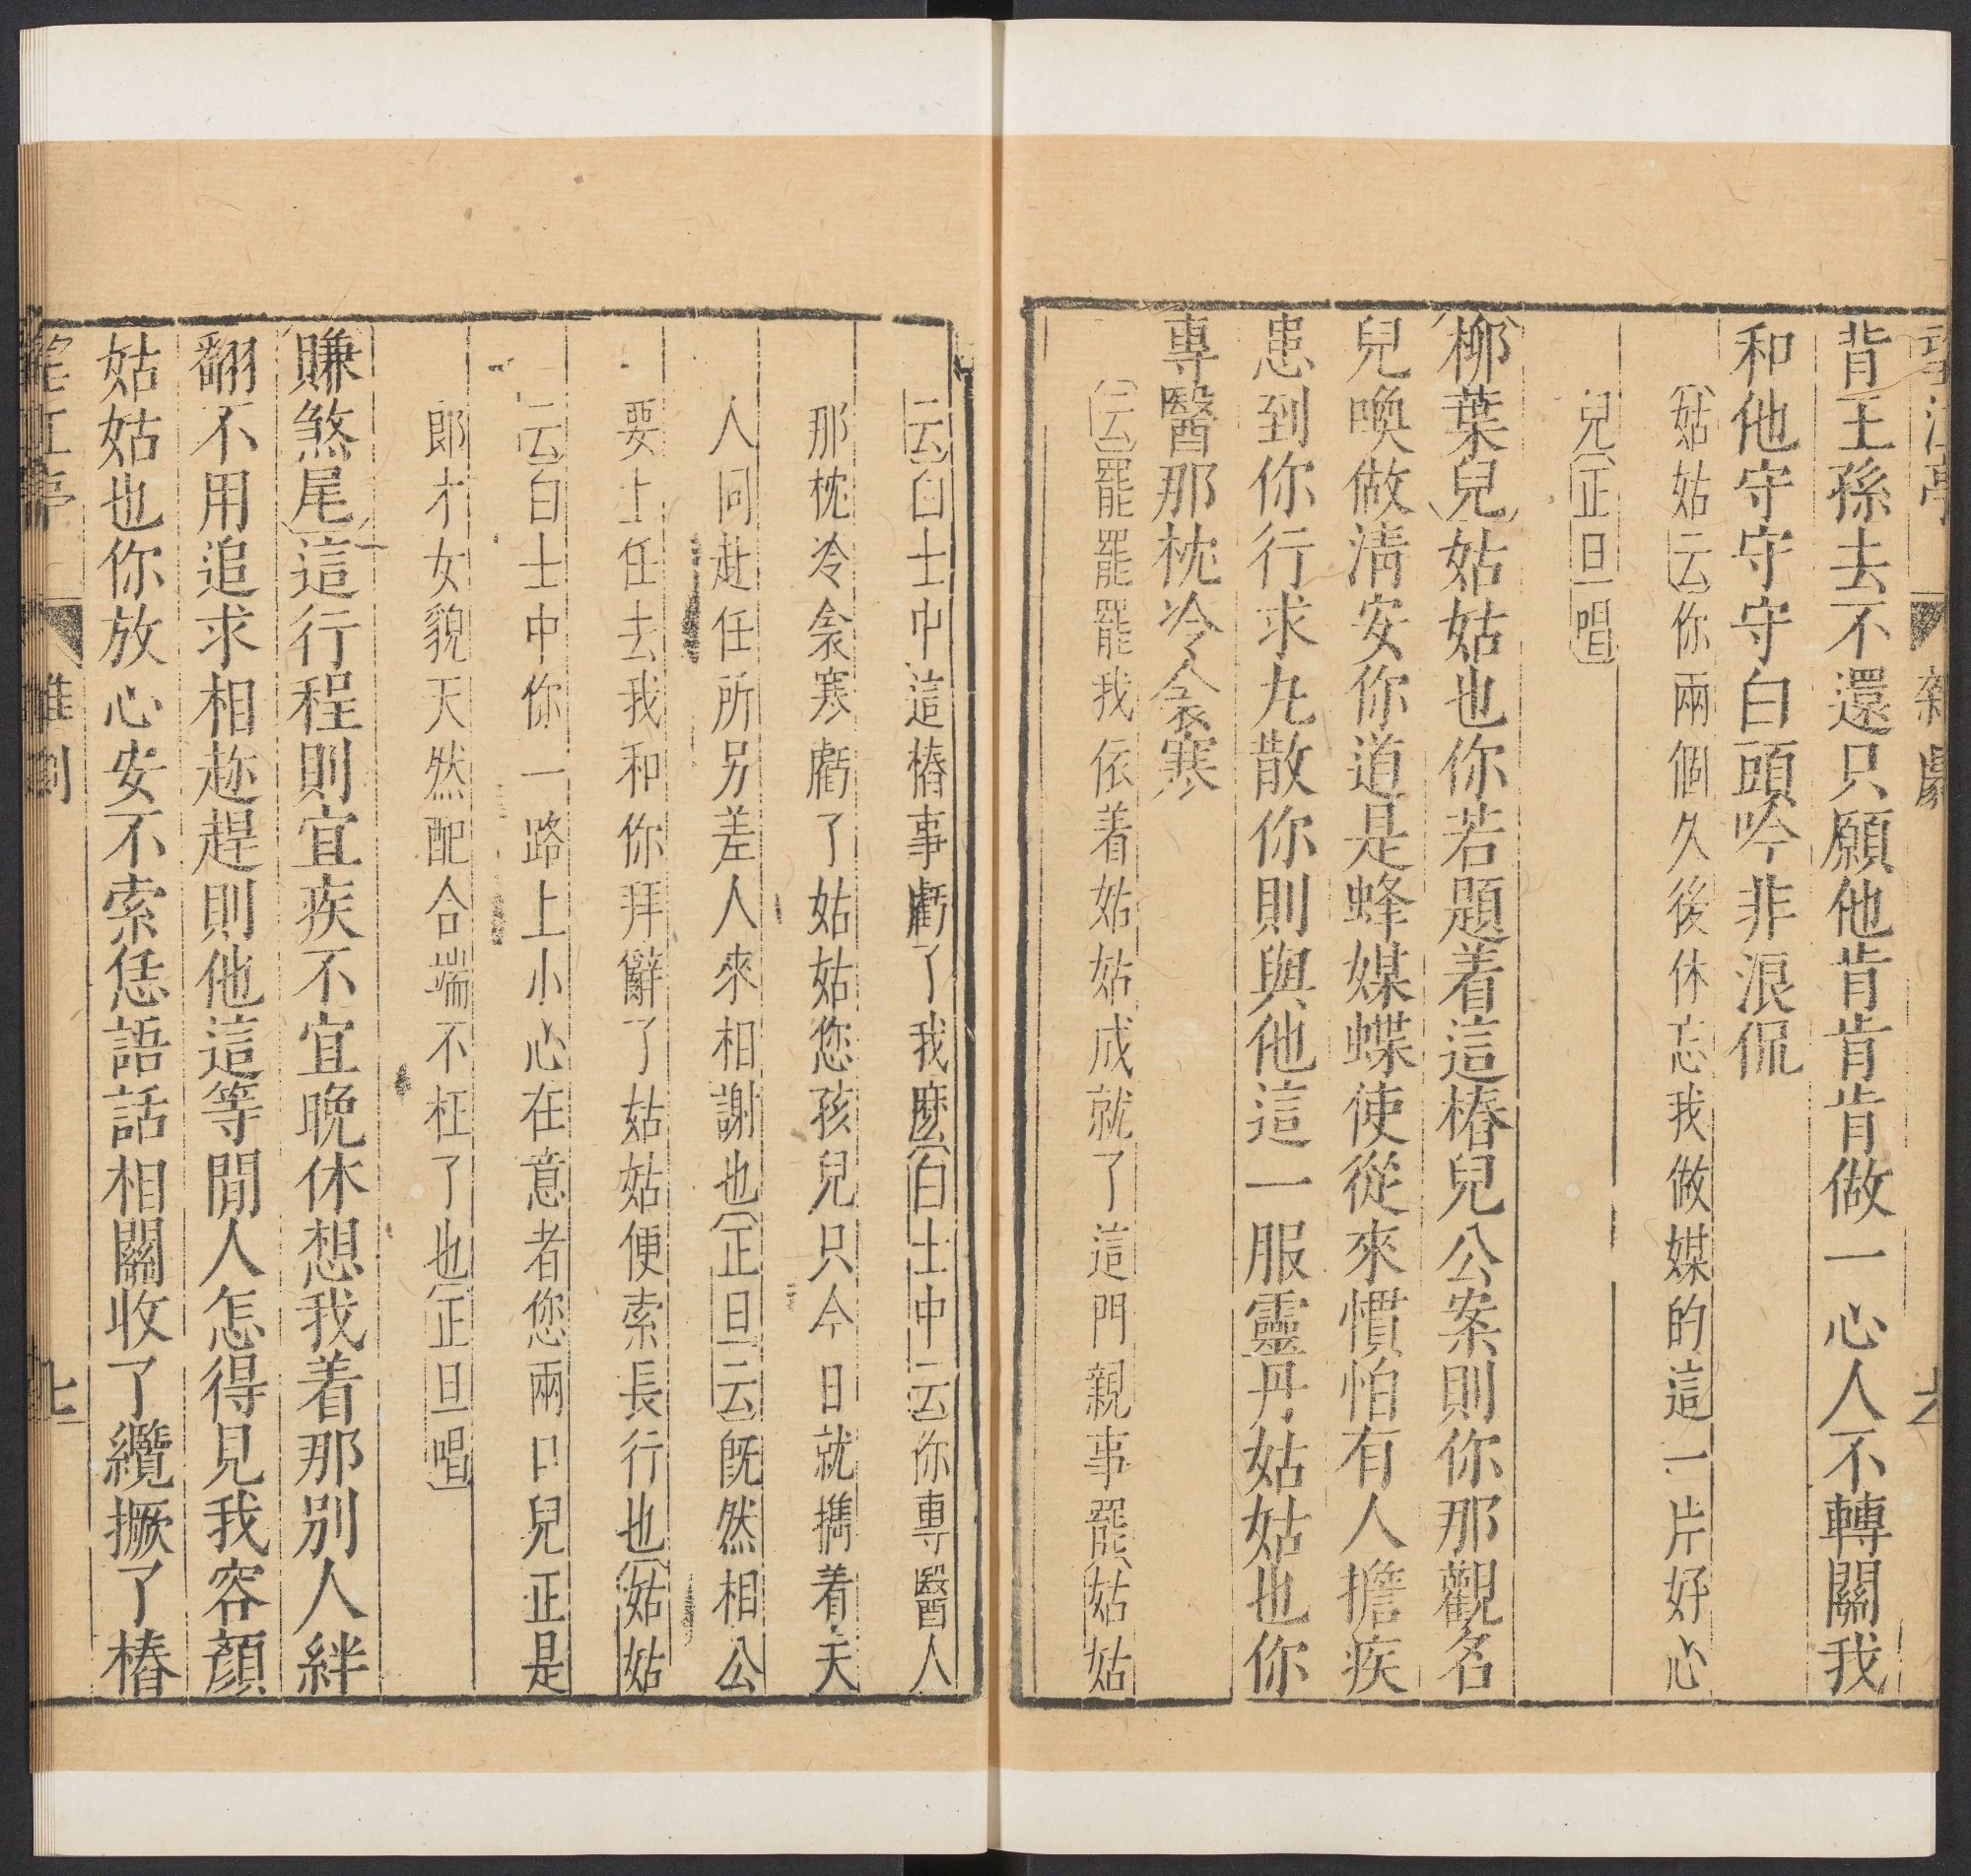 望江亭 雜劇 六
背王孫去不還只願他肯肯肯做一心人不轉關我
和他守守守白頭吟非浪侃
姑姑云你兩個久後休忘我做媒的這一片好心
兒正旦唱
柳葉兒姑姑也你若題着這樁兒公案則你那觀名
兒喚做淸安你道是蜂媒蝶使從來慣怕有人擔疾
患到你行求九散你則與他這一服靈丹姑姑也你
專醫那枕冷衾寒
云罷罷罷我依着姑姑成就了這門親事罷姑姑
云白士中這樁事虧了我麽白士中云你專醫人
那枕冷衾寒虧了姑姑您孩兒只今日就攜着夫
人同赴任所另差人來相謝也正旦云旣然相公
要上任去我和你拜辭了姑姑便索長行也姑姑
云白士中你一路上小心在意者您兩口兒正是
郎才女貌天然配合端不枉了也正旦唱
賺煞尾這行程則宜疾不宜晚休想我着那別人絆
翻不用追求相趂趕則他這等閒人怎得見我容顏
姑姑也你放心安不索恁語話相關收了纜撅了樁
江亭 七